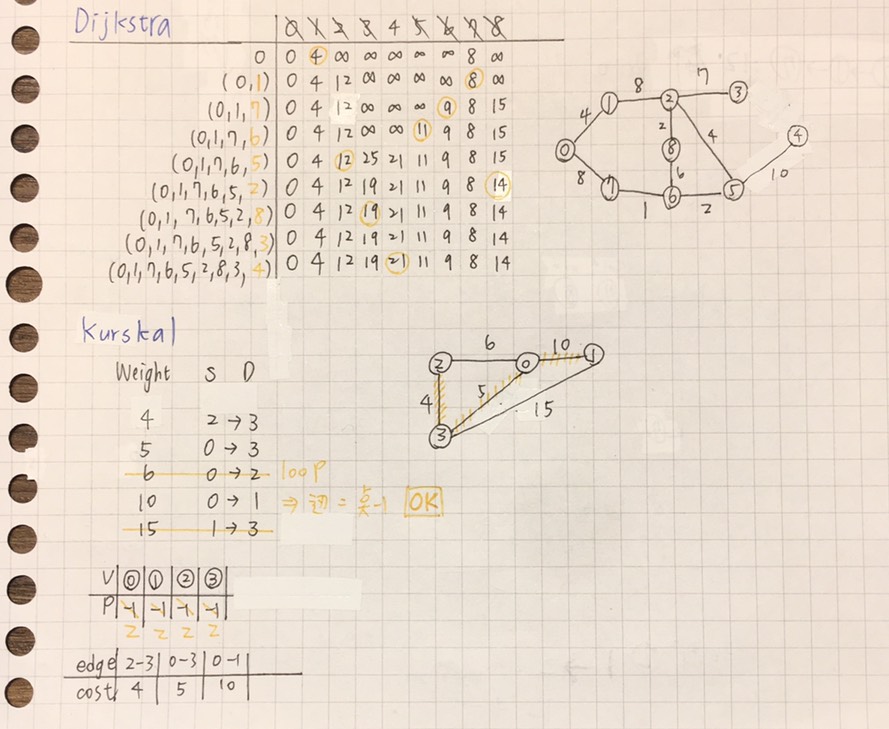 Dijkstra
0 1 2 3 4 5 6 7 8
0 0 4 ∞ ∞ ∞ ∞ ∞ 8 ∞
(0,1) 0 4 12 ∞ ∞ ∞ ∞ 8 ∞
(0,1,7) 0 4 12 ∞ ∞ ∞ 9 8 15
(0,1,7,6) 0 4 12 ∞ ∞ 11 9 8 15
(0,1,7,6,5) 0 4 12 25 21 11 9 8 15
(0,1,7,6,5,2) 0 4 12 19 21 11 9 8 14
(0,1,7,6,5,2,8) 0 4 12 19 21 11 9 8 14
(0,1,7,6,5,2,8,3) 0 4 12 19 21 11 9 8 14
(0,1,7,6,5,2,8,3,4) 0 4 12 19 21 11 9 8 14
8 7
1 2 3
4 2 4 4
0 8
8 6 10
7 6 5
1 2
Kurskal
Weight S D
4 2→3
5 0→3
6 0→2 loop
10 0→1 ⇒ 변 = 점-1 OK
15 1→3
6 10
2 0 1
4 5 15
3
V 0 1 2 3
P -1 -1 -1 -1
2 2 2 2
edge 2-3 0-3 0-1
cost 4 5 10